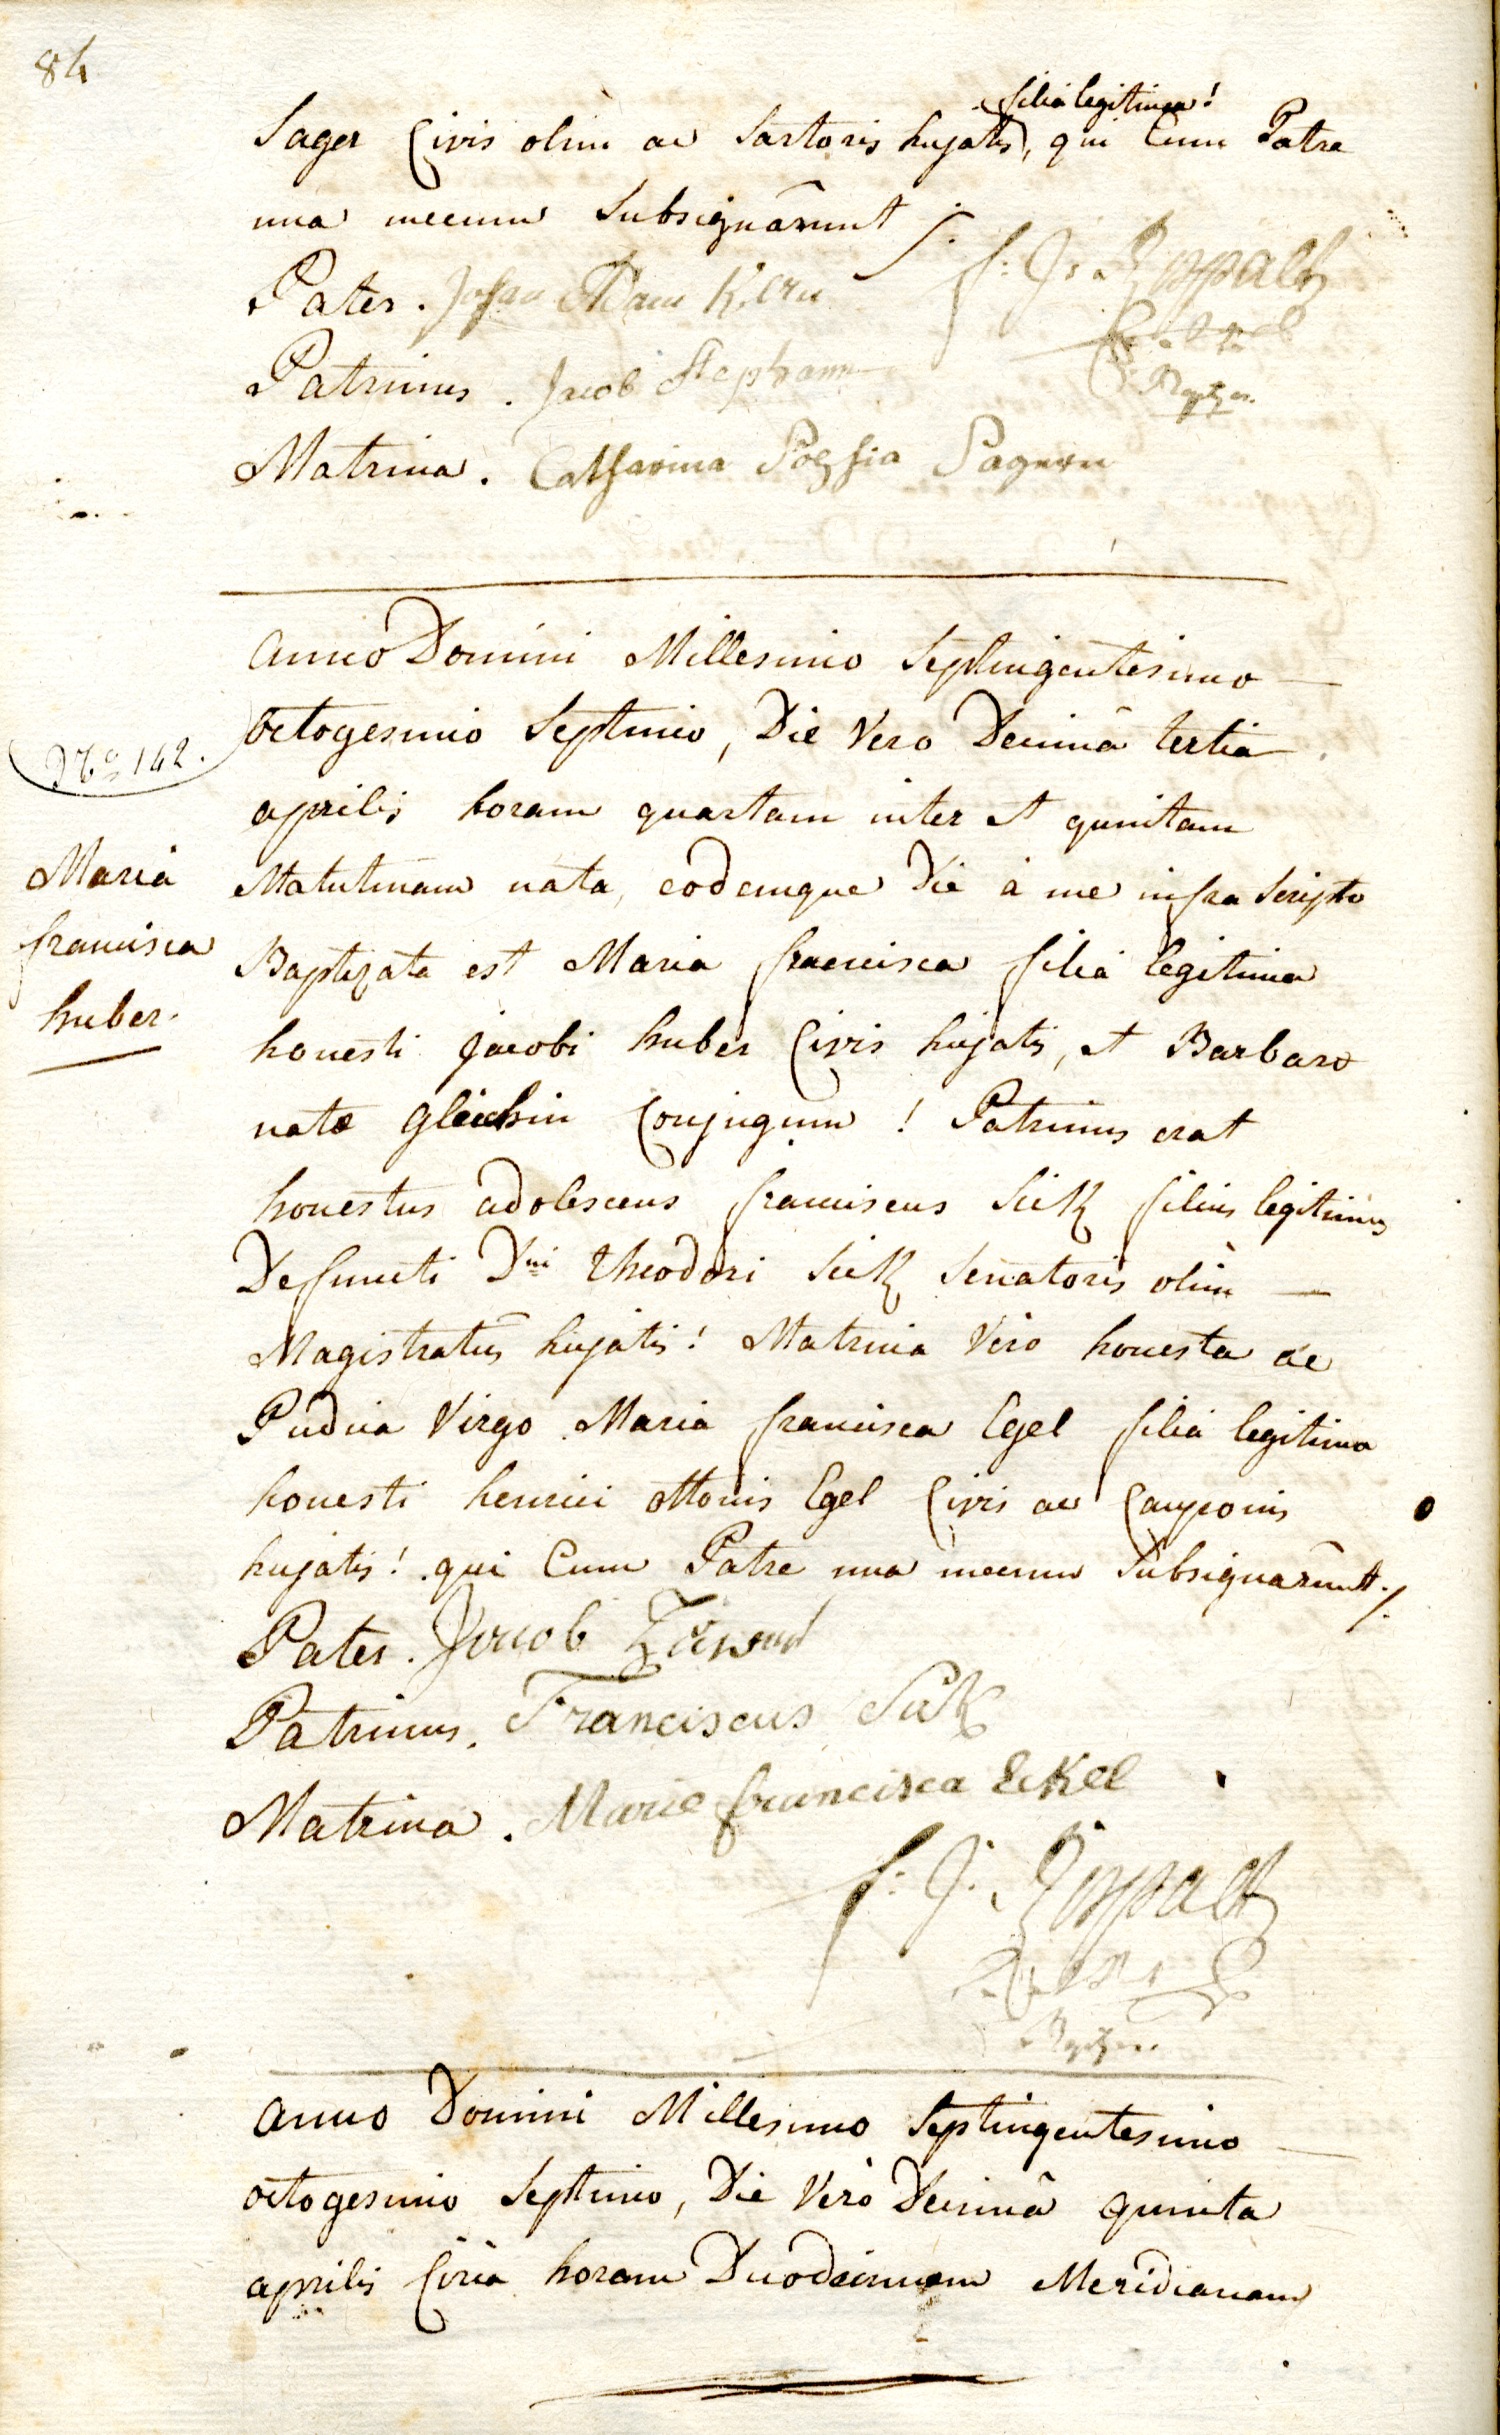 84
filia legitima!
Sager Civis olim ac Sartoris hujatis, qui Cum Patre
una mecum Subsignârunt ./.
Pater. Johan Adam Kern
f: J: Rospaltz
Patrinus. Jacob Stephann
Matrina. Catharina Sophia Sagerin
anno Domini Millesimo Septingentesimo
octogesimo Septimo, Die Vero Decimâ tertia
Nro 142.
aprilis horam quartam inter et quintam
Maria
Matutinam nata, eodemque Die à me infra Scripto
francisca
Baptizata est Maria francisca filia legitima
huber.
honesti jacobi huber Civis hujatis, et Barbaræ
natæ gleichin Conjugum! Patrinus erat
honestus adolescens franciscus Sick filius legitimus
Defuncti Dni theodori Sick Senatoris olim
Magistratûs hujatis! Matrina Vero honesta ac
Pudica Virgo Maria francisca Egel filia legitima
honesti henrici ottonis Egel Civis ac Cauponis
hujatis! qui Cum Patre una mecum Subsignarûnt ./.
Pater. Jacob
Patrinus. Franciscus Sick
Matrina. Marie francisca Eckel
f: J: Rospaltz
anno Domini Millesimo Septingentesimo
octogesimo Septimo, Die Verò Decimâ quinta
aprilis Circa horam Duodecimam Meridianam